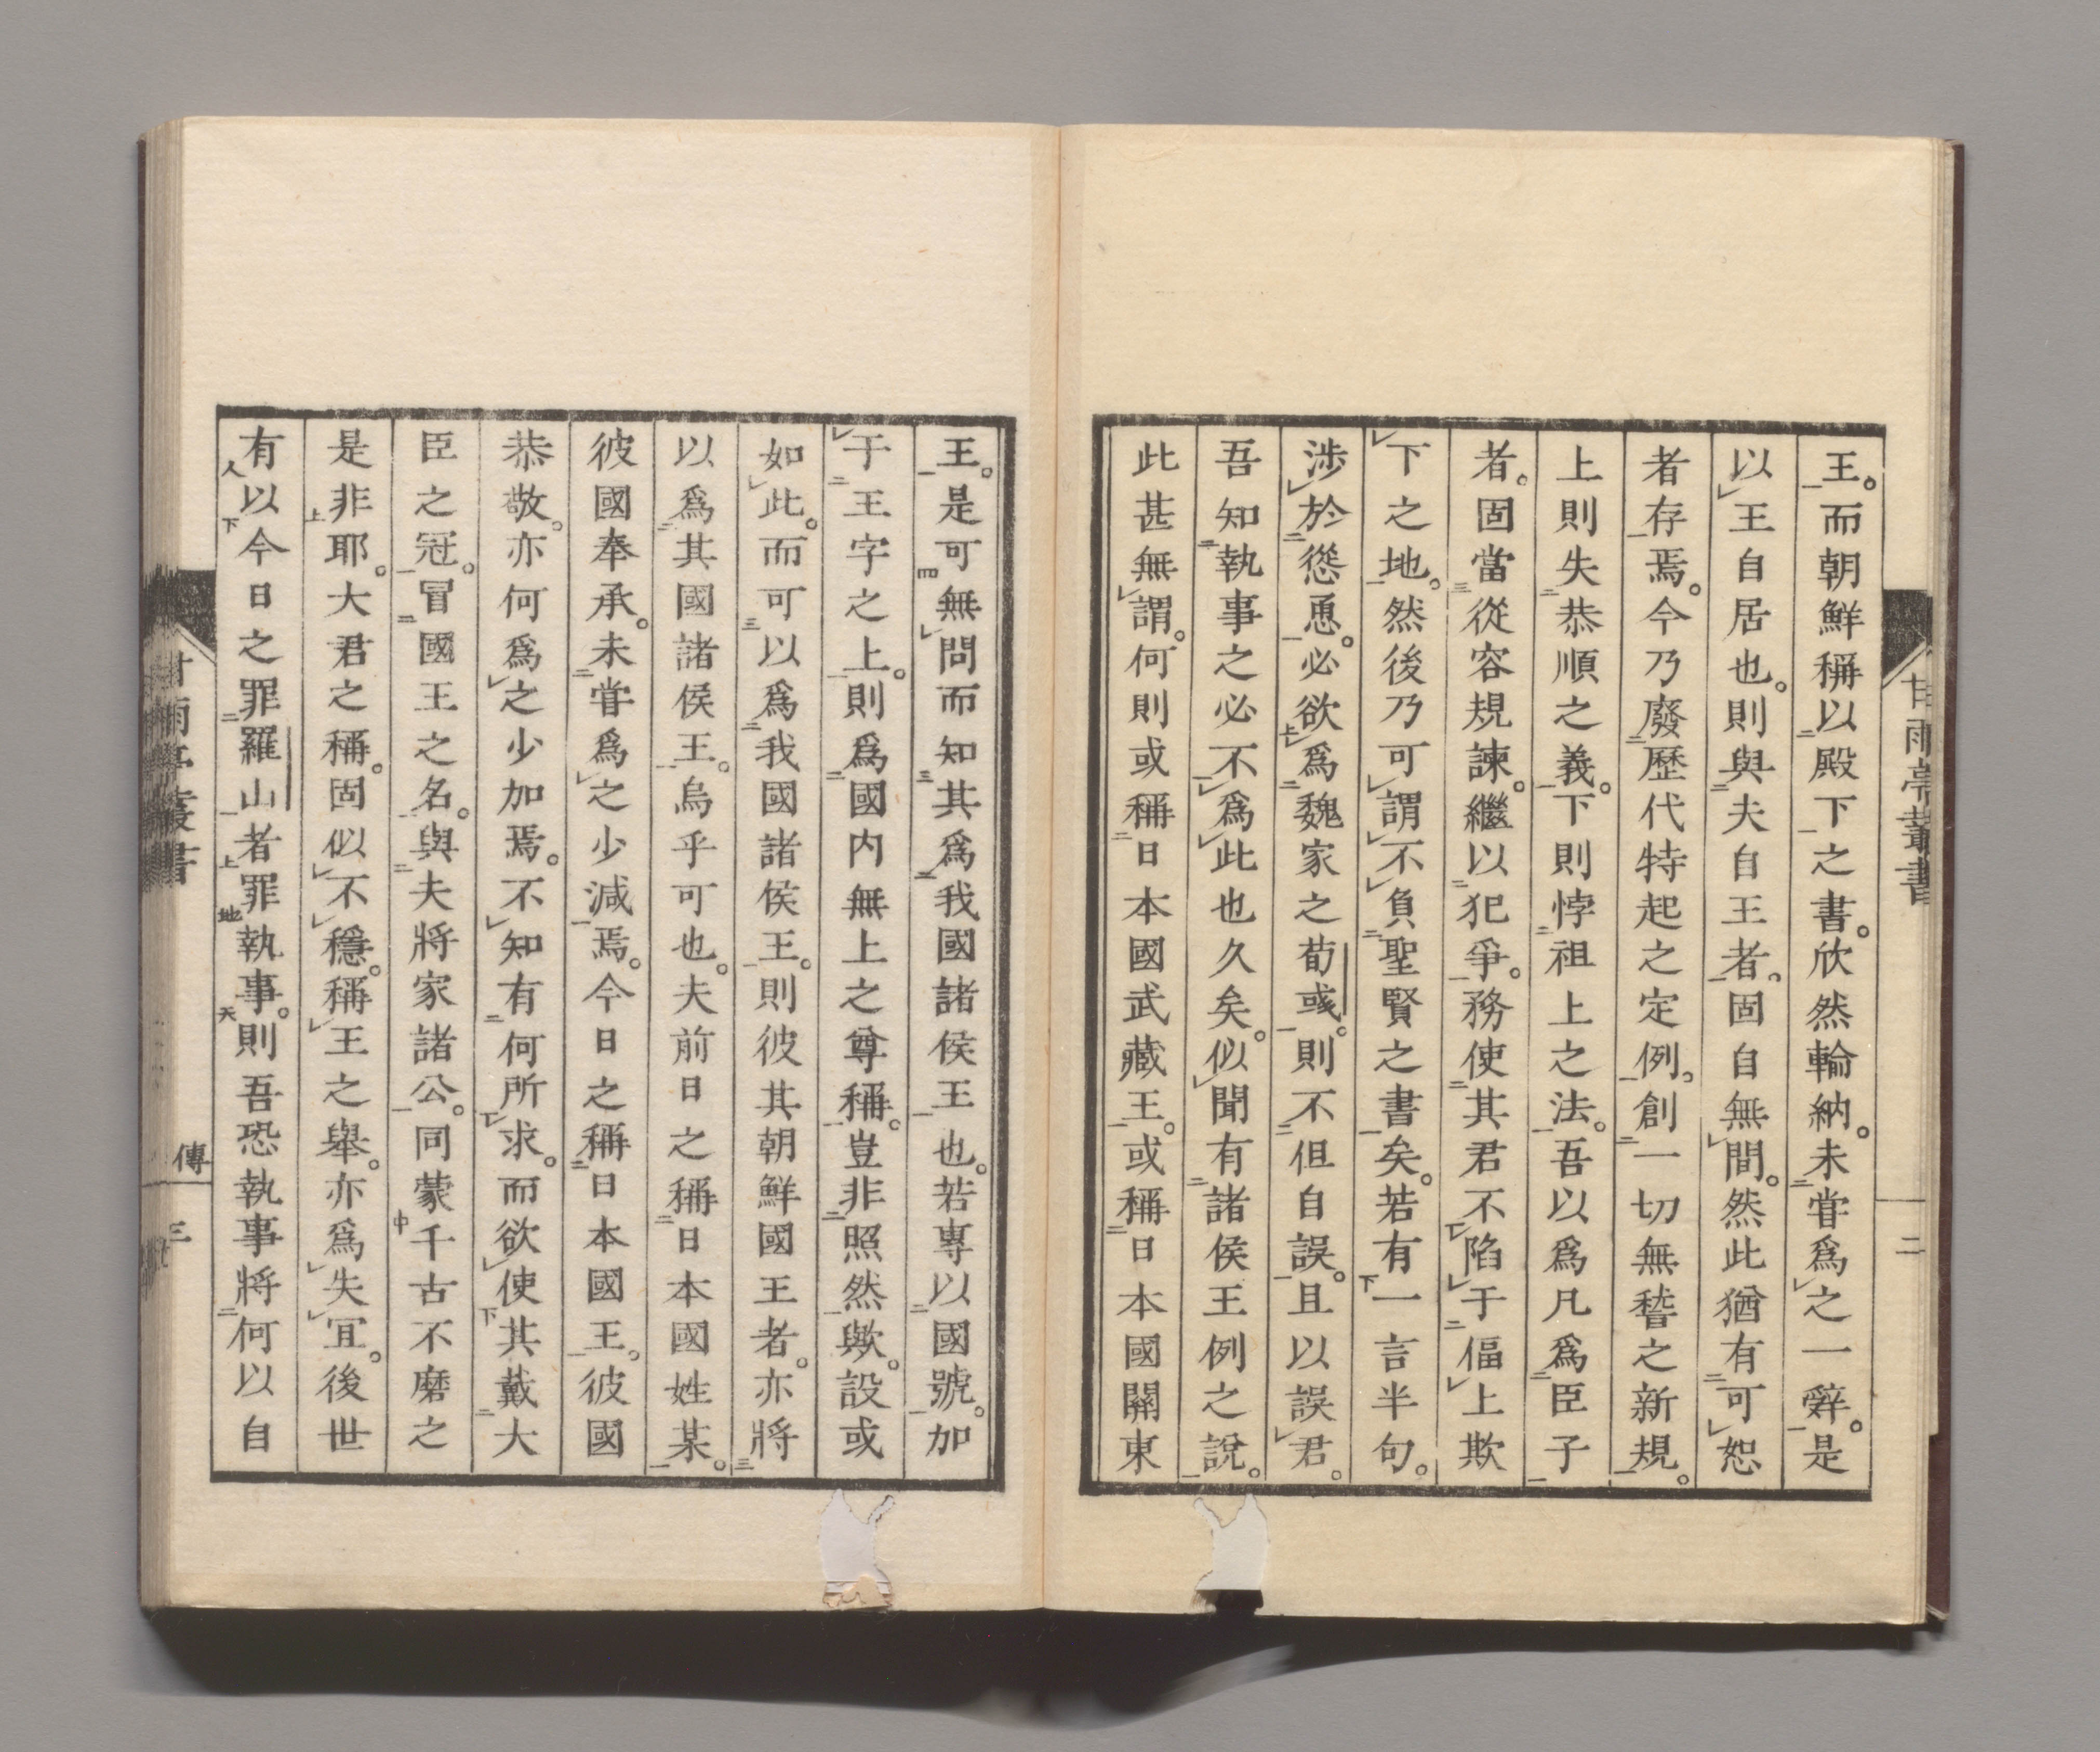 甘雨亭叢書
二
王。而朝鮮稱以殿下之書。欣然輸納。未甞爲之一辭。是
以王自居也。則與夫自王者。固自無間。然此猶有可恕
者存焉。今乃廢歷代特起之定例。創一切無稽之新規。
上則失恭順之義。下則悖祖上之法。吾以爲凡爲臣子
者。固當從容規諫。繼以犯爭。務使其君不陷于偪上欺
下之地。然後乃可謂不負聖賢之書矣。若有一言半句。
涉於慫慂。必欲爲魏家之荀彧。則不但自誤。且以誤君。
吾知執事之必不爲此也久矣。似聞有諸侯王例之說。
此甚無謂。何則或稱日本國武藏王。或稱日本國關東
王。是可無問而知其爲我國諸侯王也。若專以國號。加
于王字之上。則爲國内無上之尊稱。豈非照然歟。設或
如此。而可以爲我國諸侯王。則彼其朝鮮國王者。亦將
以爲其國諸侯王。烏乎可也。夫前日之稱日本國姓某。
彼國奉承。未甞爲之少減焉。今日之稱日本國王。彼國
恭敬。亦何爲之少加焉。不知有何所求。而欲使其戴大
臣之冠。冒國王之名。與夫將家諸公。同蒙千古不磨之
是非耶。大君之稱。固似不穩。稱王之舉。亦爲失宜。後世
有以今日之罪羅山者罪執事。則吾恐執事將何以自
甘雨亭叢書
傳
三